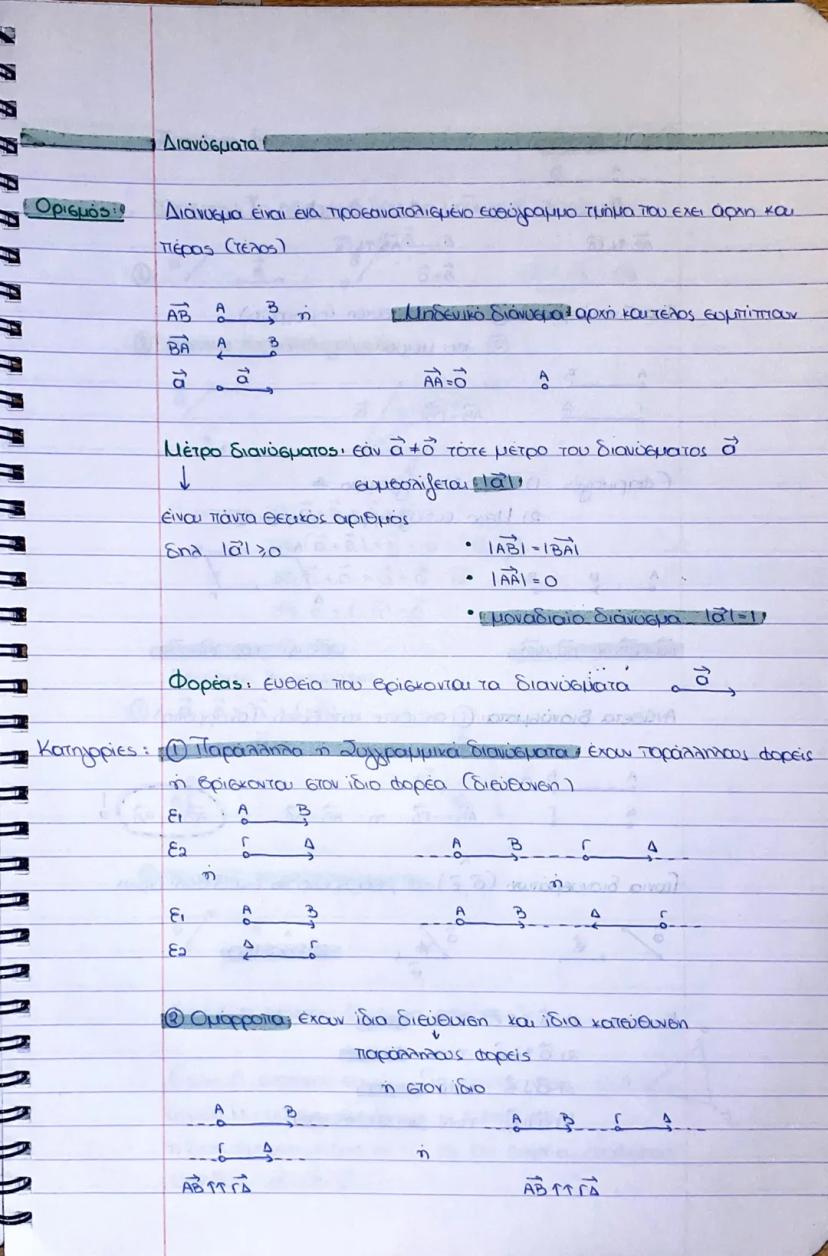 Διανύσματα
Ορισμός: Διάνυσμα είναι ένα προσανατολισμένο ευθύγραμμο τμήμα που έχει αρχή και
πέρας (τέλος)
A⃗B⃗ A B ή Μηδενικό διάνυσμα: αρχή και τέλος συμπίπτουν
B⃗A⃗ A B
a⃗ a⃗ A⃗A⃗=0⃗ A
Μέτρο διανύσματος: εάν a⃗≠0⃗ τότε μέτρο του διανύσματος a⃗
↓ συμβολίζεται |a⃗|
είναι πάντα θετικός αριθμός
δηλ |a⃗|≥0 • |A⃗B⃗|=|B⃗A⃗|
• |A⃗A⃗|=0
• μοναδιαίο διάνυσμα |a⃗|=1
Φορέας: ευθεία που βρίσκονται τα διανύσματα a⃗
Κατηγορίες: ① Παράλληλα ή Συγγραμμικά διανύσματα: έχουν παράλληλους φορείς
ή βρίσκονται στον ίδιο φορέα (διεύθυνση)
ε1 A B
ε2 Γ Δ A B Γ Δ
ή ή
ε1 A B A B Δ Γ
ε2 Δ Γ
② Ομόρροπα: έχουν ίδια διεύθυνση και ίδια κατεύθυνση
↓
παράλληλους φορείς
ή στον ίδιο
A B A B Γ Δ
Γ Δ ή
A⃗B⃗↑↑Γ⃗Δ⃗ A⃗B⃗↑↑Γ⃗Δ⃗